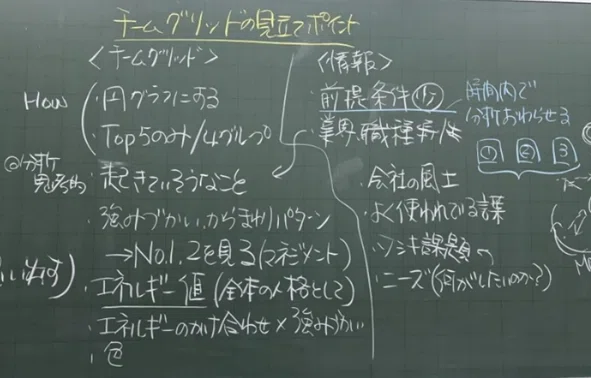 チームグリッドの見立てポイント
<チームグリッド>
How
・円グラフにする
・Top5のみ/4グループ
・起きていそうなこと
・強みづかい、からまわりパターン
→No.1,2を見る(マネジメント)
・エネルギー値(全体の人格として)
・エネルギーのかけ合わせ×強みづかい
・色
<情報>
・前提条件
時間内で
分析おわらせる
① ② 3
・業界、職種
・会社の風土
・よく使われている
課題
・ニーズ(何がしたいのか?)